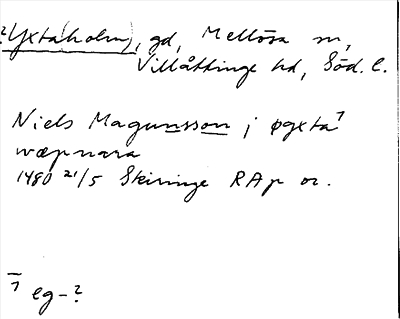 ?Yxta(holm), gd, Mellösa sn,
Villåttinge hd, Söd. l.
Niels Magunsson j øgxta⁷
wæpnara
1480 21/5 Skiringe RAp or.
⁷ eg-?